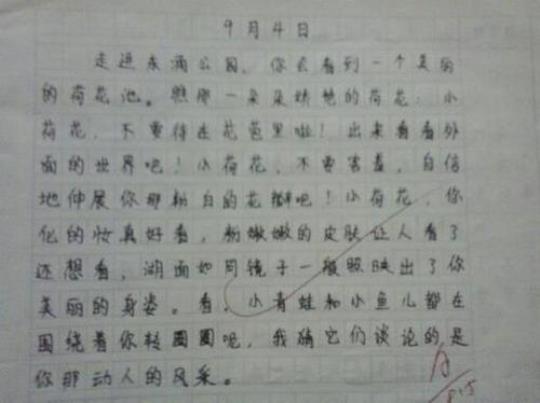 9月4日
走进东浦公园，你会看到一个美丽
的荷花池。瞧那一朵朵娇艳的荷花：小
荷花，不要待在花苞里啦！出来看看外
面的世界吧！小荷花，不要害羞，自信
地伸展你那粉白的花瓣吧！小荷花，你
化的妆真好看，粉嫩嫩的皮肤让人看了
还想看，湖面如同镜子一般照映出了你
美丽的身姿。看，小青蛙和小鱼儿都在
围绕着你转圈圈呢，我猜它们谈论的是
你那动人的风采。
A